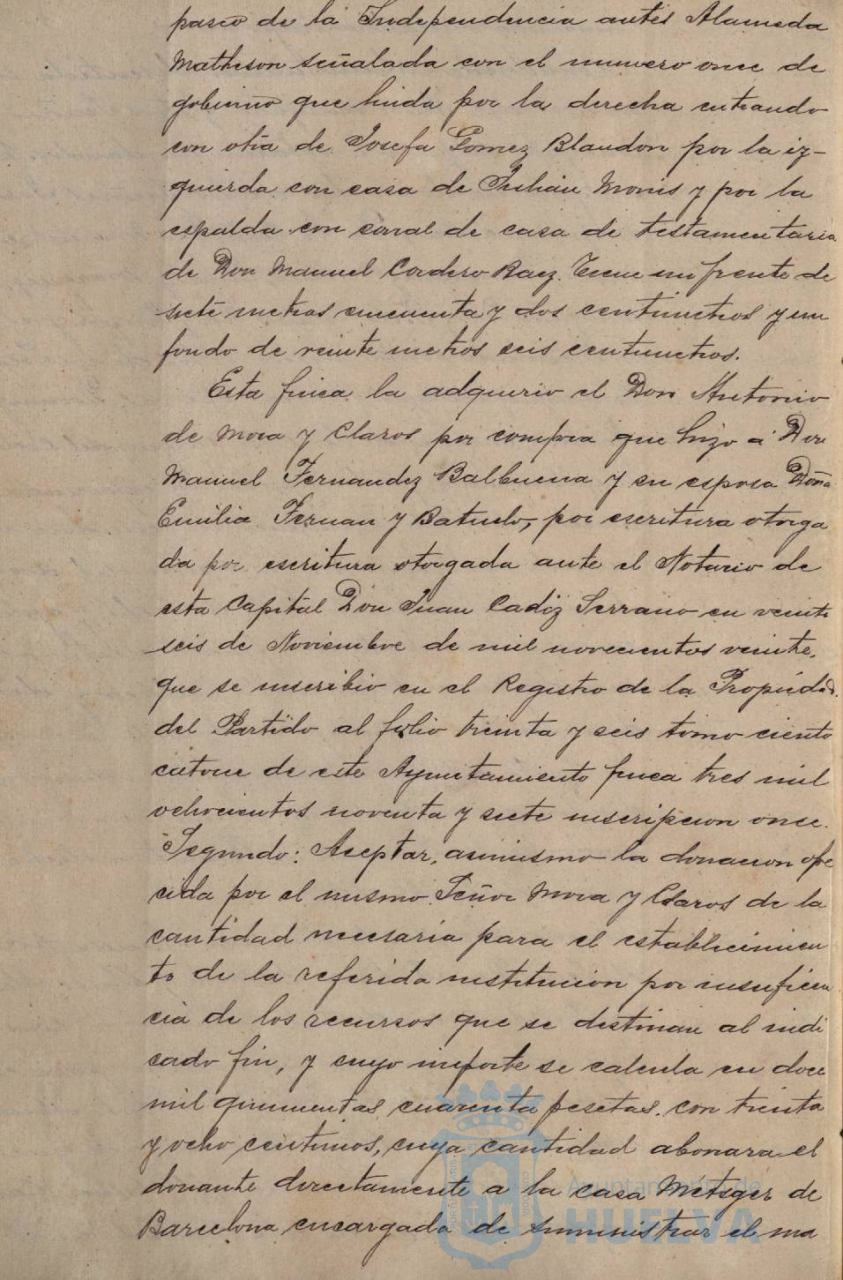 paseo de la Independencia antes Alameda
Matheson señalada con el numero once de
gobierno que linda por la derecha entrando
con otra de Josefa Gomez Blandon por la iz-
quierda con casa de Julián Monis y por la
espalda con corral de casa de testamentaria
de Don Manuel Cordero Baez. Tiene un frente de
siete metros cincuenta y dos centimetros y un
fondo de veinte metros seis centimetros.
Esta finca la adquerio el Don Antonio
de Mora y Claros por compra que hizo á Don
Manuel Fernandez Balbuena y su esposa Doña
Emilia Fernan y Batuelo, por escritura otorga
da por escritura otorgada ante el Notario de
esta Capital Don Juan Cadiz Serrano en veinte
seis de Noviembre de mil novecientos veinte,
que se inscribio en el Registro de la Propiedad.
del Partido al folio treinta y seis tomo ciento
catorce de este Ayuntamiento finca tres mil
ochocientos noventa y siete inscripcion once.
Segundo: Aceptar, asimismo la donacion ofre
cida por el mismo Señor Mora y Claros de la
cantidad necesaria para el establecimien
to de la referida institucion por insuficien
cia de los recursos que se destinan al indi
cado fin, y cuyo importe se calcula en doce
mil quinientas cuarenta pesetas. con treinta
y ocho centimos, cuya cantidad abonara el
donante directamente a la casa Metzger de
Barcelona encargada de suministrar el ma
Ayuntamiento de
HUELVA